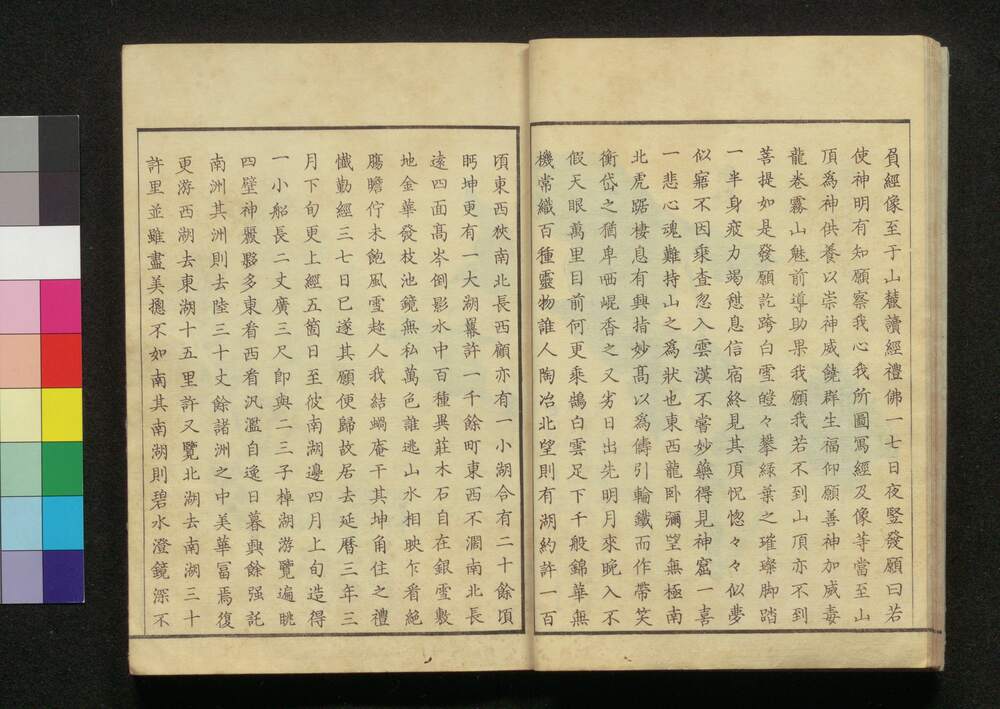 負經像至于山麓讀經禮佛一七日夜竪發願曰若
使神明有知願察我心我所圖寫經及像等當至山
頂為神供養以崇神威饒群生福仰願善神加威毒
龍卷霧山魅前導助果我願我若不到山頂亦不到
菩提如是發願訖跨白雪皚々攀緑葉之璀璨脚踏
一半身疲力竭憇息信宿終見其頂怳惚々々似夢
似寤不因乘查忽入雲漢不嘗妙藥得見神窟一喜
一悲心魂難持山之為狀也東西龍卧彌望無極南
北虎踞棲息有興指妙髙以為儔引輪鐵而作帶笑
衡岱之猶卑哂崐香之又劣日出先明月來晚入不
假天眼萬里目前何更乘鵠白雲足下千般錦華無
機常織百種靈物誰人陶冶北望則有湖約許一百
頃東西狹南北長西顧亦有一小湖合有二十餘頃
眄坤更有一大湖羃許一千餘町東西不濶南北長
遠四面髙岑倒影水中百種異莊木石自在銀雪敷
地金華發枝池鏡無私萬色誰逃山水相映乍看絶
膓瞻佇未飽風雪趂人我結蝸庵于其坤角住之禮
懺勤經三七日已遂其願便歸故居去延曆三年三
月下旬更上經五箇日至彼南湖邊四月上旬造得
一小船長二丈廣三尺即與二三子棹湖游覽遍眺
四壁神襲夥多東看西看汎濫自逸日暮興餘强託
南洲其洲則去陸三十丈餘諸洲之中美華冨焉復
更游西湖去東湖十五里許又覽北湖去南湖三十
許里並雖盡美摠不如南其南湖則碧水澄鏡深不